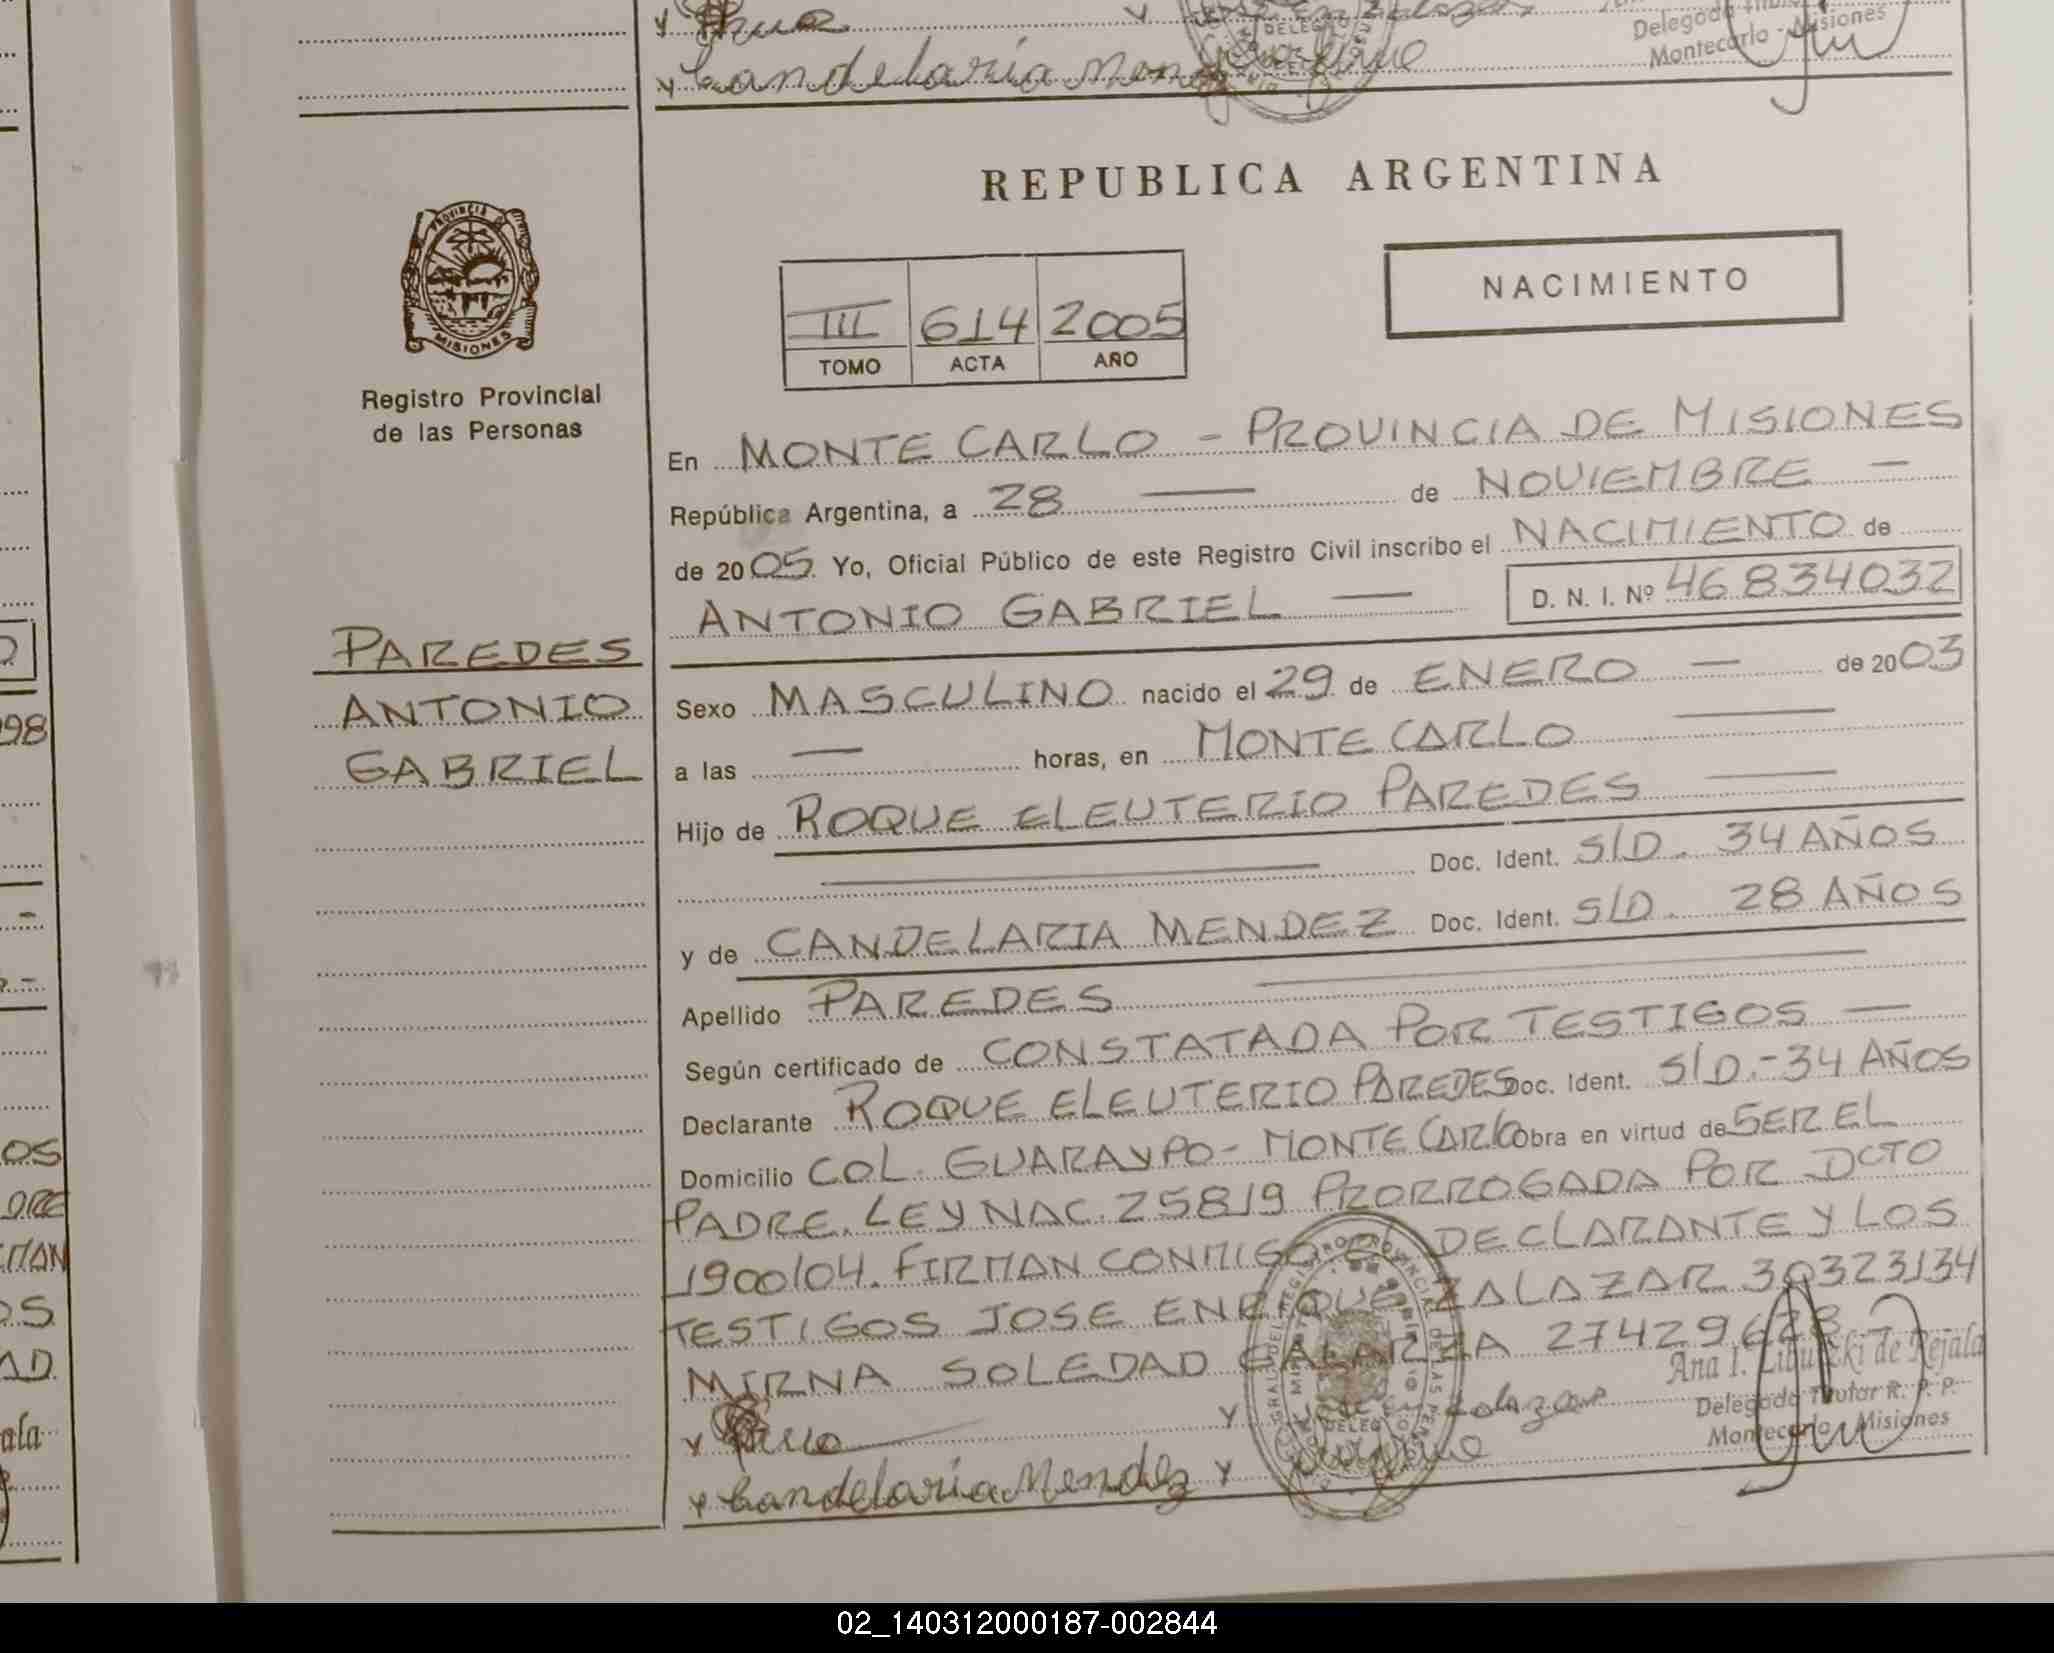 Candelaria Mendez
Delegada Titular
Montecarlo - Misiones
PROVINCIA DE MISIONES
Registro Provincial
de las Personas
REPUBLICA ARGENTINA
NACIMIENTO
III 614 2005
TOMO ACTA AÑO
En MONTE CARLO - PROVINCIA DE MISIONES
República Argentina, a 28 — de NOVIEMBRE —
de 2005 Yo, Oficial Público de este Registro Civil inscribo el NACIMIENTO de
ANTONIO GABRIEL — D. N. I. Nº 46834032
PAREDES
ANTONIO
GABRIEL
Sexo MASCULINO nacido el 29 de ENERO — de 2003
a las — horas, en MONTE CARLO —
Hijo de ROQUE ELEUTERIO PAREDES —
— Doc. Ident. S/D. 34 AÑOS
y de CANDELARIA MENDEZ Doc. Ident. S/D. 28 AÑOS
Apellido PAREDES —
Según certificado de CONSTATADA POR TESTIGOS —
Declarante ROQUE ELEUTERIO PAREDES Doc. Ident. S/D.-34 AÑOS
Domicilio COL. GUARAYPO- MONTE CARLO obra en virtud de SER EL
PADRE. LEY NAC. 25819 PRORROGADA POR DCTO
1900/04. FIRMAN CONMIGO EL DECLARANTE Y LOS
TESTIGOS JOSE ENRIQUE ZALAZAR 30323134
MIRNA SOLEDAD GALARZA 27429628
Ana I. de Rejala
Delegada Titular R. P. P.
Montecarlo - Misiones
y y Zalazar
y Candelaria Mendez y
02_140312000187-002844